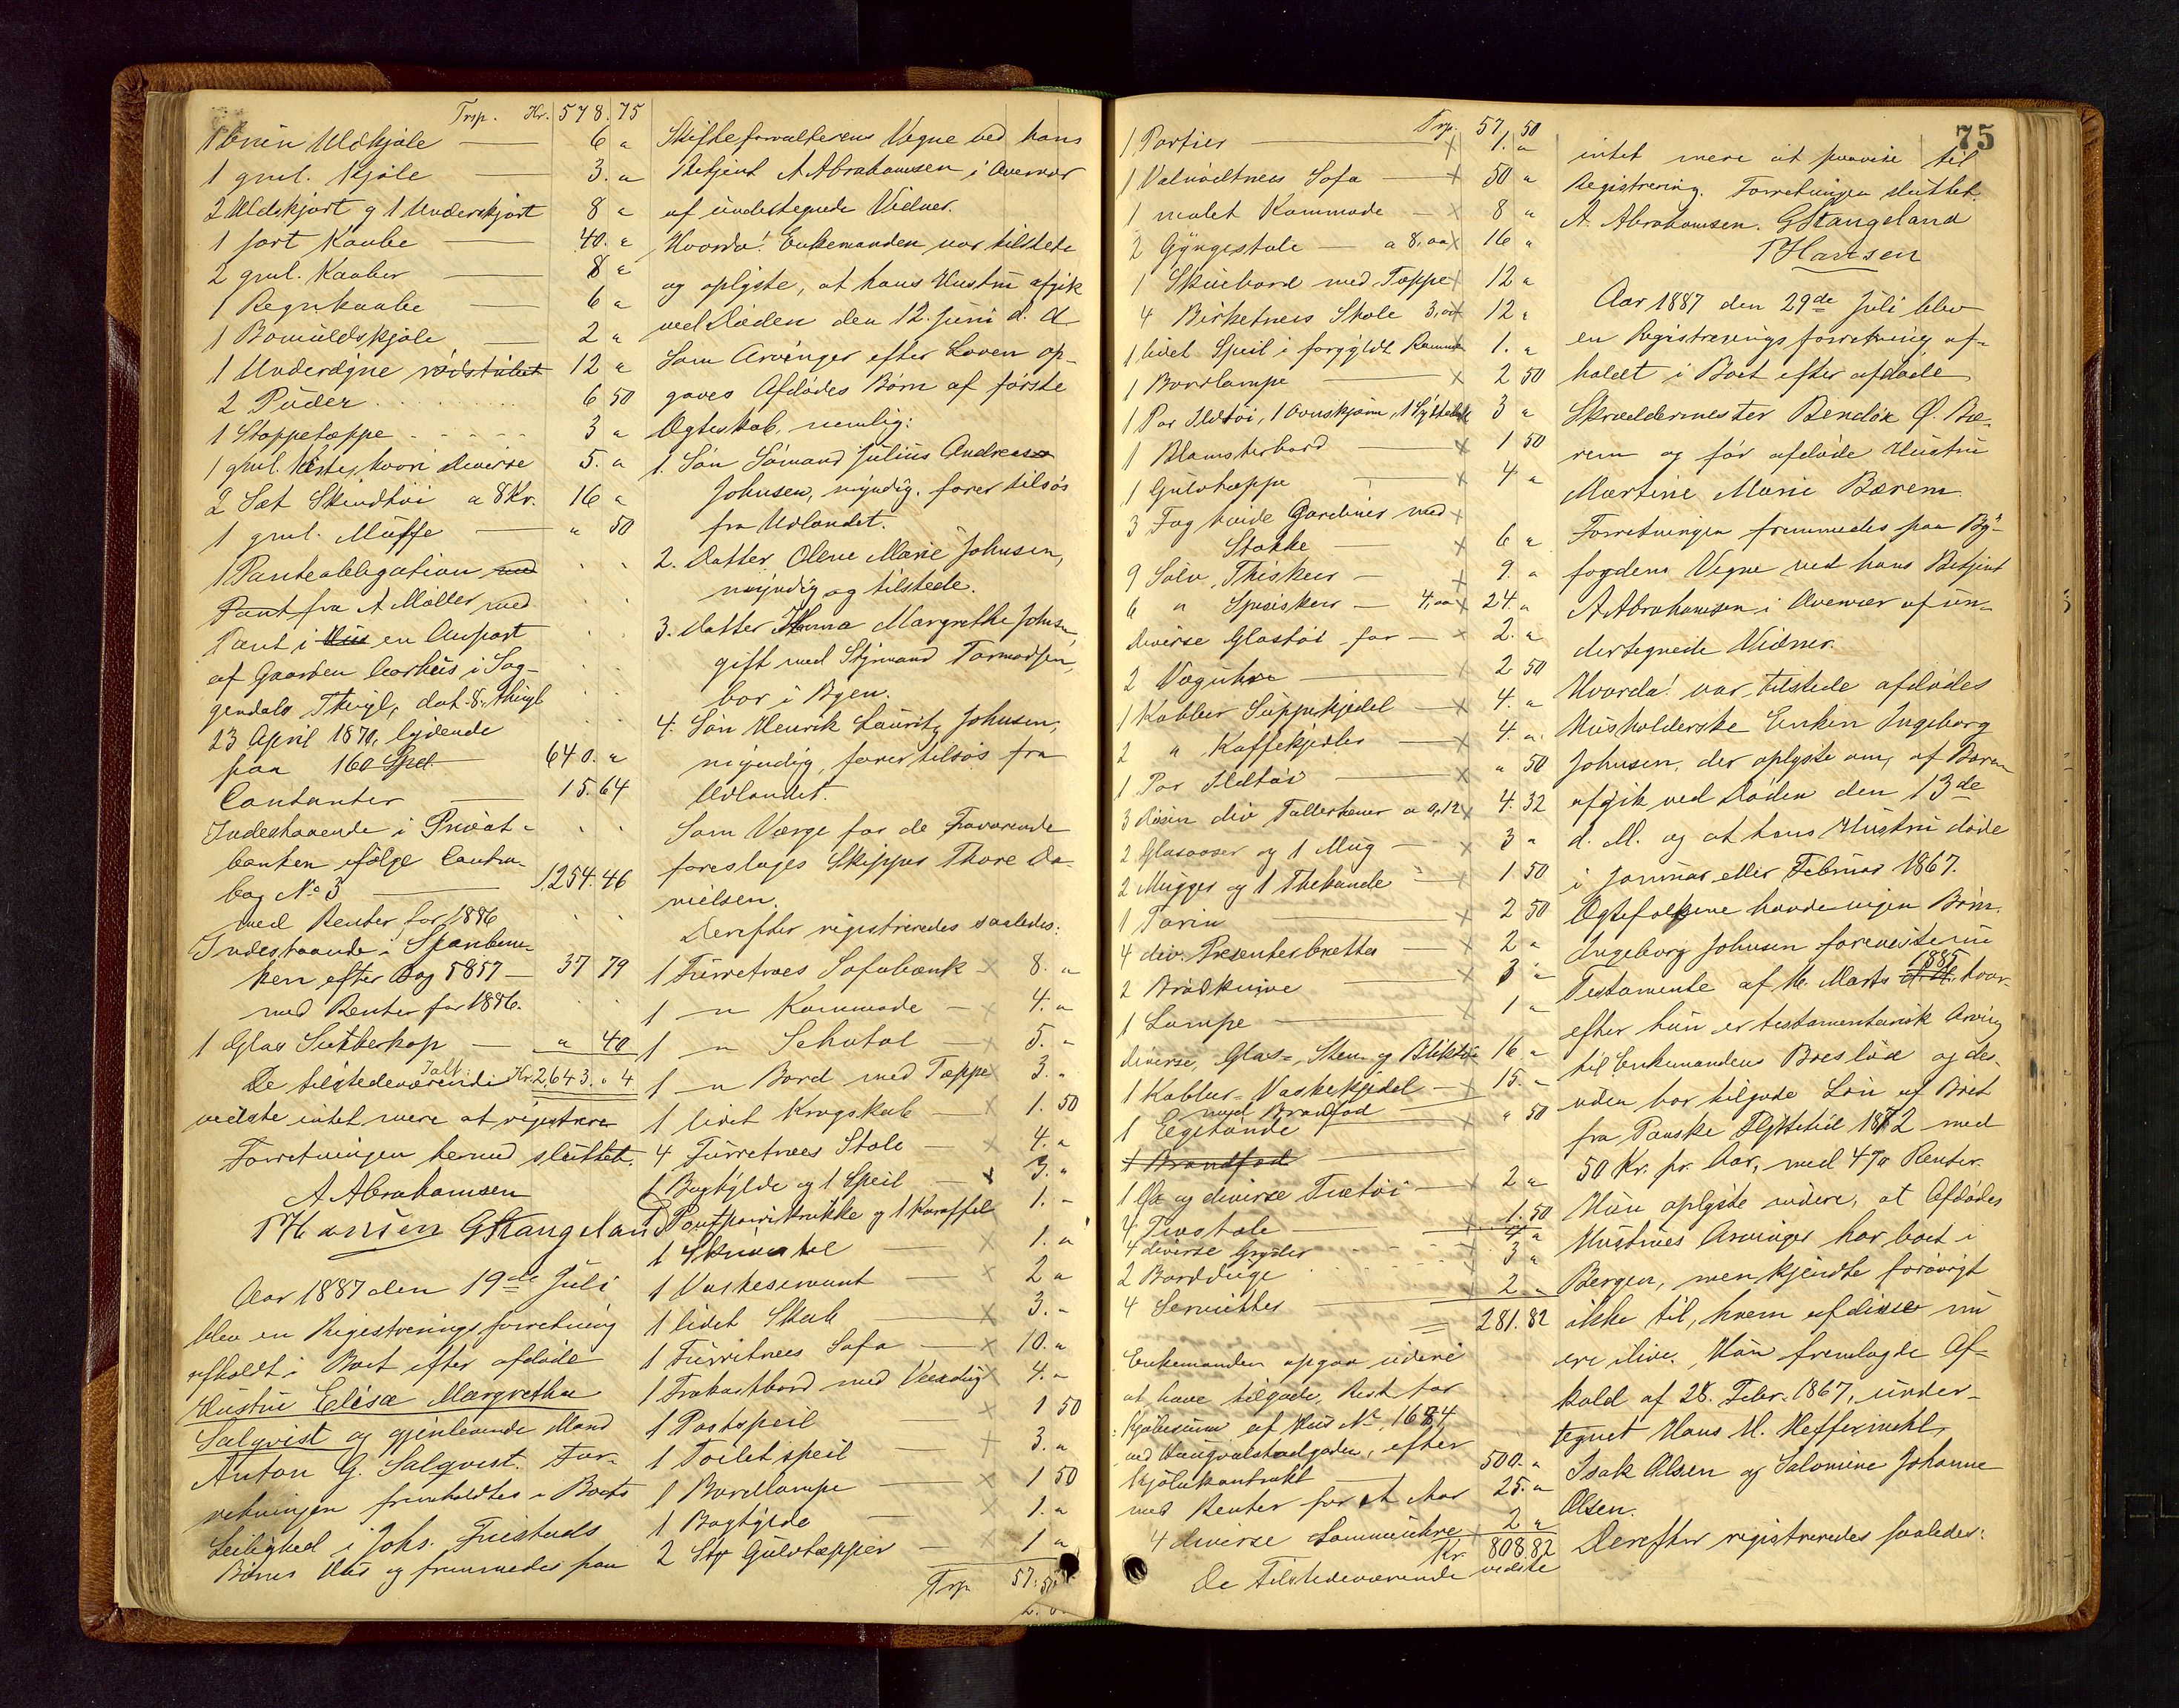 Trsp. Kr. 578.75
1 brun Uldkjole — 6 "
1 gml. Kjole — 3. "
2 Uldskjørt og 1 Underskjørt 8 "
1 sort Kaabe — 40. "
2 gml. Kaaber — 8 "
1 Regnkaabe — 6 "
1 Bomuldskjole — 2 "
1 Underdyne 12 "
2 Puder 6 50
1 Stoppetæppe 3 "
1 gml. Kiste, hvori diverse 5. "
2 Sæt Skindtøi a 8 Kr. 16 "
1 gml. Muffe — " 50
1 Panteobligation med
Pant fra A Møller med
Pant i Hus en Anpart
af Gaarden Aarhus i Sog-
gendals Thingl, dat. & thingl
23 April 1870, lydende
paa 160 Spd. 640. "
Contanter — 15.64
Indestaaende i Privat-
banken ifølge Contra-
bog No 3 — 1254.46
med Renter for 1886
Indestaaende i Spareban-
ken efter Bog 5857 — 37 79
med Renter for 1886.
1 Glas Sukkerkop — " 40
Ialt:
De tilstedeværende Kr. 2,643. 04
vidste intet mere at registrere
Forretningen hermed sluttet.
A Abrahamsen
T Hansen GStangeland
Aar 1887 den 19de Juli
blev en Registreringsforretning
afholdt i Boet efter afdøde
Hustru Elisa Margrethe
Salqvist og gjenlevende Mand
Anton G. Salqvist. For-
retningen fremholdtes i Boets
Leilighed i Johs. Fuestads
Børns Hus og fremmedes paa
Skifteforvalterens Vegne ved hans
Betjent A Abrahamsen i Overvær
af undertegnede Vidner.
Hvorda! Enkemanden var tilstede
og oplyste, at hans Hustru afgik
ved Døden den 12. Juni d. A
Som Arvinger efter Loven op-
gaves Afdødes Børn af første
Ægteskab, nemlig:
1. Søn Sømand Julius Andreas
Johnsen, myndig, farer tilsøs
fra Udlandet.
2. Datter Olene Marie Johnsen,
myndig og tilstede.
3. Datter Hanna Margrethe Johnsen,
gift med Styrmand Tormodsen,
bor i Byen.
4. Søn Henrik Lauritz Johnsen,
myndig, farer tilsøs fra
Udlandet.
Som Værge for de Fraværende
foresloges Skipper Thore Da-
nielsen.
Derefter registreredes saaledes:
1 Furretræes Sofabænk × 8. "
1 — " — Kommode — × 4. "
1 — " — Schatol — × 5. "
1 — " — Bord med Tæppe × 3. "
1 lidet Krogskab — × 1. 50
4 Furretræes Stole — × 4. "
1 Boghylde og 1 Speil — × 3. "
1 Portvinskrukke og 1 Karaffel 1. "
1 Skrivestol — × 1. "
1 Vaskeservant — × 2 "
1 lidet Skab — × 3. "
1 Furretræes Sofa — × 10. "
1 Frokostbord med Voxdug × 4. "
1 Postspeil × 1 50
1 Toiletspeil × 3. "
1 Bordlampe — × 1 50
1 Boghylde — × 1. "
2 Stkr Gulvtæpper — 1 "
Trsp. 57.50
75
Trp. 57,50
1 Portier — × 1. "
1 Valnødtræes Sofa — × 50 "
1 malet Kommode — × 8 "
2 Gyngestole — a 8,00 × 16 "
1 Skuebord med Tæppe × 12 "
4 Birketræes Stole 3,00 × 12 "
1 lidet Speil i forgyldt Ramme 1. "
1 Bordlampe — × 2 50
1 Par Ildtøi, 1 Ovnskjærm, 3 "
1 Blomsterbord — × 1 50
1 Gulvtæppe — × 4 "
3 Fag hvide Gardiner med ×
Stokke — × 6 "
9 Sølv Theskeer — × 9. "
6 " Spiseskeer — 4,00 × 24. "
diverse Glastøi for — × 2. "
2 Væguhre — 2 50
1 Kobber Suppekjedel — × 4. "
2 " Kaffekjedler — × 4. "
1 Par Ildtøi — × " 50
3 Dusin div Tallerkener a 0,12 × 4.32
2 Glasvaser og 1 Mug — × 3 "
2 Mugger og 1 Thekande — × 1 50
1 Terin — × 2 50
4 div. Presenterbretter — × 2 "
2 Brødknive — × 3 "
1 Lampe — × 1 "
diverse, Glas- Sten- og Bliktøi 16 "
1 Kobber- Vaskekjedel — × 15. "
med Brandfod
1 Egetønde — × " 50
1 Brandfod
1 Øx og diverse Trætøi — × 2 "
4 Træstole — × 1.50
4 diverse Gryder 4 "
2 Bordduge × 3 "
4 Servietter — × 2 "
= 281.82
Enkemanden opgav videre
at have tilgode, Rest for
Kjøbesum af Hus No 1684
ved Haugvaldstadgaden, efter
Kjøbekontrakt — 500. "
med Renter for et Aar 25. "
4 diverse Lommeuhre 2 "
Kr. 808.82
De Tilstedeværende vidste
intet mere at paavise til
Registrering. Forretningen sluttet.
A. Abrahamsen. GStangeland
T Hansen
Aar 1887 den 29de Juli blev
en Registreringsforretning af-
holdt i Boet efter afdøde
Skræddermester Bendix O. Bæ-
rem og før afdøde Hustru
Martine Marie Bærem.
Forretningen fremmedes paa By-
fogdens Vegne ved hans Betjent
A Abrahamsen i Overvær af un-
dertegnede Vidner.
Hvorda! var tilstede afdødes
Husholderske Enken Ingeborg
Johnsen, der oplyste om, at Bærem
afgik ved Døden den 13de
d. M. og at hans Hustru døde
i Januar eller Februar 1867.
Ægtefolkene havde ingen Børn.
Ingeborg Johnsen foreviste un
Testamente af 16. Marts 1885, hvor-
efter hun er testamentarisk Arving
til Enkemandens Boeslod og des-
uden har tilgode Løn af Boet
fra Paaske Flyttetid 1872 med
50 Kr. pr. Aar, med 4% Renter.
Hun oplyste videre, at Afdødes
Hustrues Arvinger har boet i
Bergen, men kjendte forøvrigt
ikke til, hvem af disse nu
ere ilive. Hun fremlagde Af-
kald af 28. Febr. 1867, under-
tegnet Hans H. Heffermehl,
Isak Olsen og Salomine Johanne
Olsen.
Derefter registreredes saaledes: